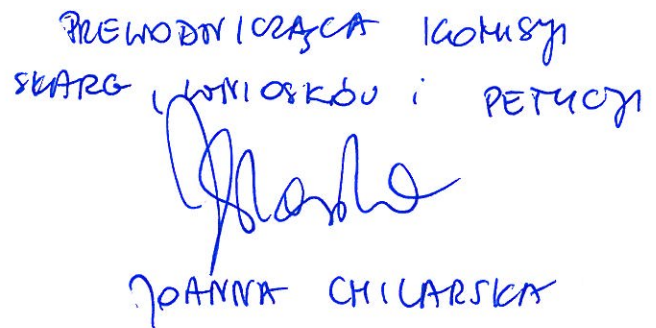 PREWODNICZĄCA KOMISJI
SKARG, WNIOSKÓW i PETYCJI
JOANNA CHILARSKA